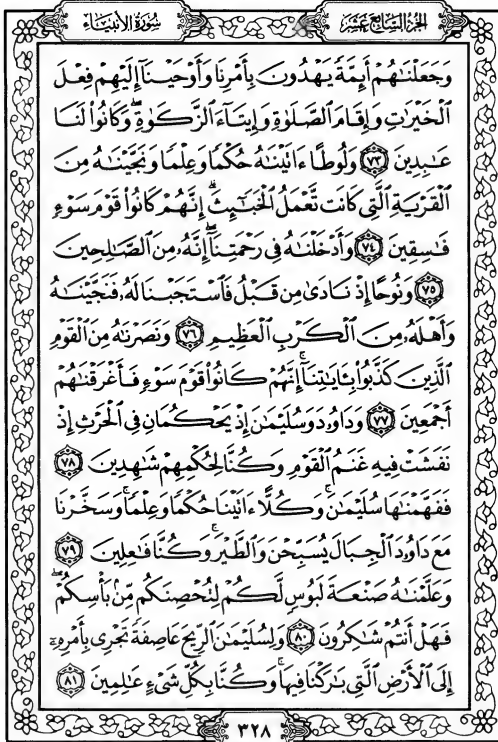 سُورَةُ الأنبيَاء
الجزء السَّابع عَشَر
وَجَعَلْنَٰهُمْ أَئِمَّةً يَهْدُونَ بِأَمْرِنَا وَأَوْحَيْنَآ إِلَيْهِمْ فِعْلَ
ٱلْخَيْرَٰتِ وَإِقَامَ ٱلصَّلَوٰةِ وَإِيتَآءَ ٱلزَّكَوٰةِۖ وَكَانُوا۟ لَنَا
عَٰبِدِينَ ٧٣ وَلُوطًا ءَاتَيْنَٰهُ حُكْمًا وَعِلْمًا وَنَجَّيْنَٰهُ مِنَ
ٱلْقَرْيَةِ ٱلَّتِى كَانَت تَّعْمَلُ ٱلْخَبَٰٓئِثَۗ إِنَّهُمْ كَانُوا۟ قَوْمَ سَوْءٍ
فَٰسِقِينَ ٧٤ وَأَدْخَلْنَٰهُ فِى رَحْمَتِنَآۖ إِنَّهُۥ مِنَ ٱلصَّٰلِحِينَ
٧٥ وَنُوحًا إِذْ نَادَىٰ مِن قَبْلُ فَٱسْتَجَبْنَا لَهُۥ فَنَجَّيْنَٰهُ
وَأَهْلَهُۥ مِنَ ٱلْكَرْبِ ٱلْعَظِيمِ ٧٦ وَنَصَرْنَٰهُ مِنَ ٱلْقَوْمِ
ٱلَّذِينَ كَذَّبُوا۟ بِـَٔايَٰتِنَآۚ إِنَّهُمْ كَانُوا۟ قَوْمَ سَوْءٍ فَأَغْرَقْنَٰهُمْ
أَجْمَعِينَ ٧٧ وَدَاوُۥدَ وَسُلَيْمَٰنَ إِذْ يَحْكُمَانِ فِى ٱلْحَرْثِ إِذْ
نَفَشَتْ فِيهِ غَنَمُ ٱلْقَوْمِ وَكُنَّا لِحُكْمِهِمْ شَٰهِدِينَ ٧٨
فَفَهَّمْنَٰهَا سُلَيْمَٰنَۚ وَكُلًّا ءَاتَيْنَا حُكْمًا وَعِلْمًاۚ وَسَخَّرْنَا
مَعَ دَاوُۥدَ ٱلْجِبَالَ يُسَبِّحْنَ وَٱلطَّيْرَۚ وَكُنَّا فَٰعِلِينَ ٧٩
وَعَلَّمْنَٰهُ صَنْعَةَ لَبُوسٍ لَّكُمْ لِتُحْصِنَكُم مِّنۢ بَأْسِكُمْۖ
فَهَلْ أَنتُمْ شَٰكِرُونَ ٨٠ وَلِسُلَيْمَٰنَ ٱلرِّيحَ عَاصِفَةً تَجْرِى بِأَمْرِهِۦٓ
إِلَى ٱلْأَرْضِ ٱلَّتِى بَٰرَكْنَا فِيهَاۚ وَكُنَّا بِكُلِّ شَىْءٍ عَٰلِمِينَ ٨١
٣٢٨